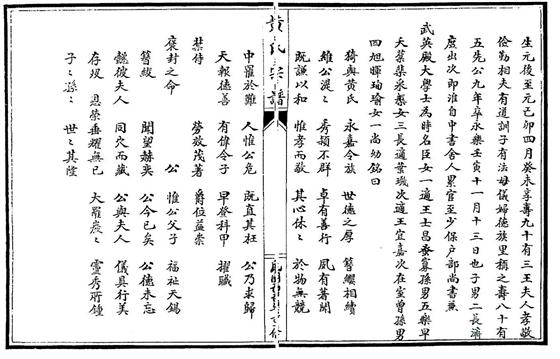 生元後至元己卯四月癸未享壽九十有三王夫人孝敬
儉勤相夫有道訓子有法母儀婦德族里稱之壽八十有
五先公九年卒永樂壬寅十一月十三日也子男二長濟
出次即淮自中書舍人累官至少保户部尚書兼
武英殿大學士為時名臣女一適王士昌蚤寡孫男五樂早
夭棐采女三長適葉璣次適王宜嘉次在室曾孫男
四旭暉珣瑜女一尚幼銘曰
猗與黃氏 永嘉令族 世德之厚 簪纓相續
維公混〻 秀穎不群 卓有善行 夙有著聞
既謙以和 惟孝而敬 其心休〻 於物無競
黃氏宗譜
中罹於難 人惟公危 既直其枉 公乃來歸
天報德善 有偉令子 早登科甲 擢職
禁侍 勞效茂著 爵位益崇
褒封之命 公 惟公父子 福祉天錫
簪紱 聞望赫奕 公今已矣 公德未忘
懿彼夫人 同穴而藏 公與夫人 儀具行美
存歿 恩榮垂耀無已 大羅〻 靈秀所鍾
子〻孫〻 世〻其隆